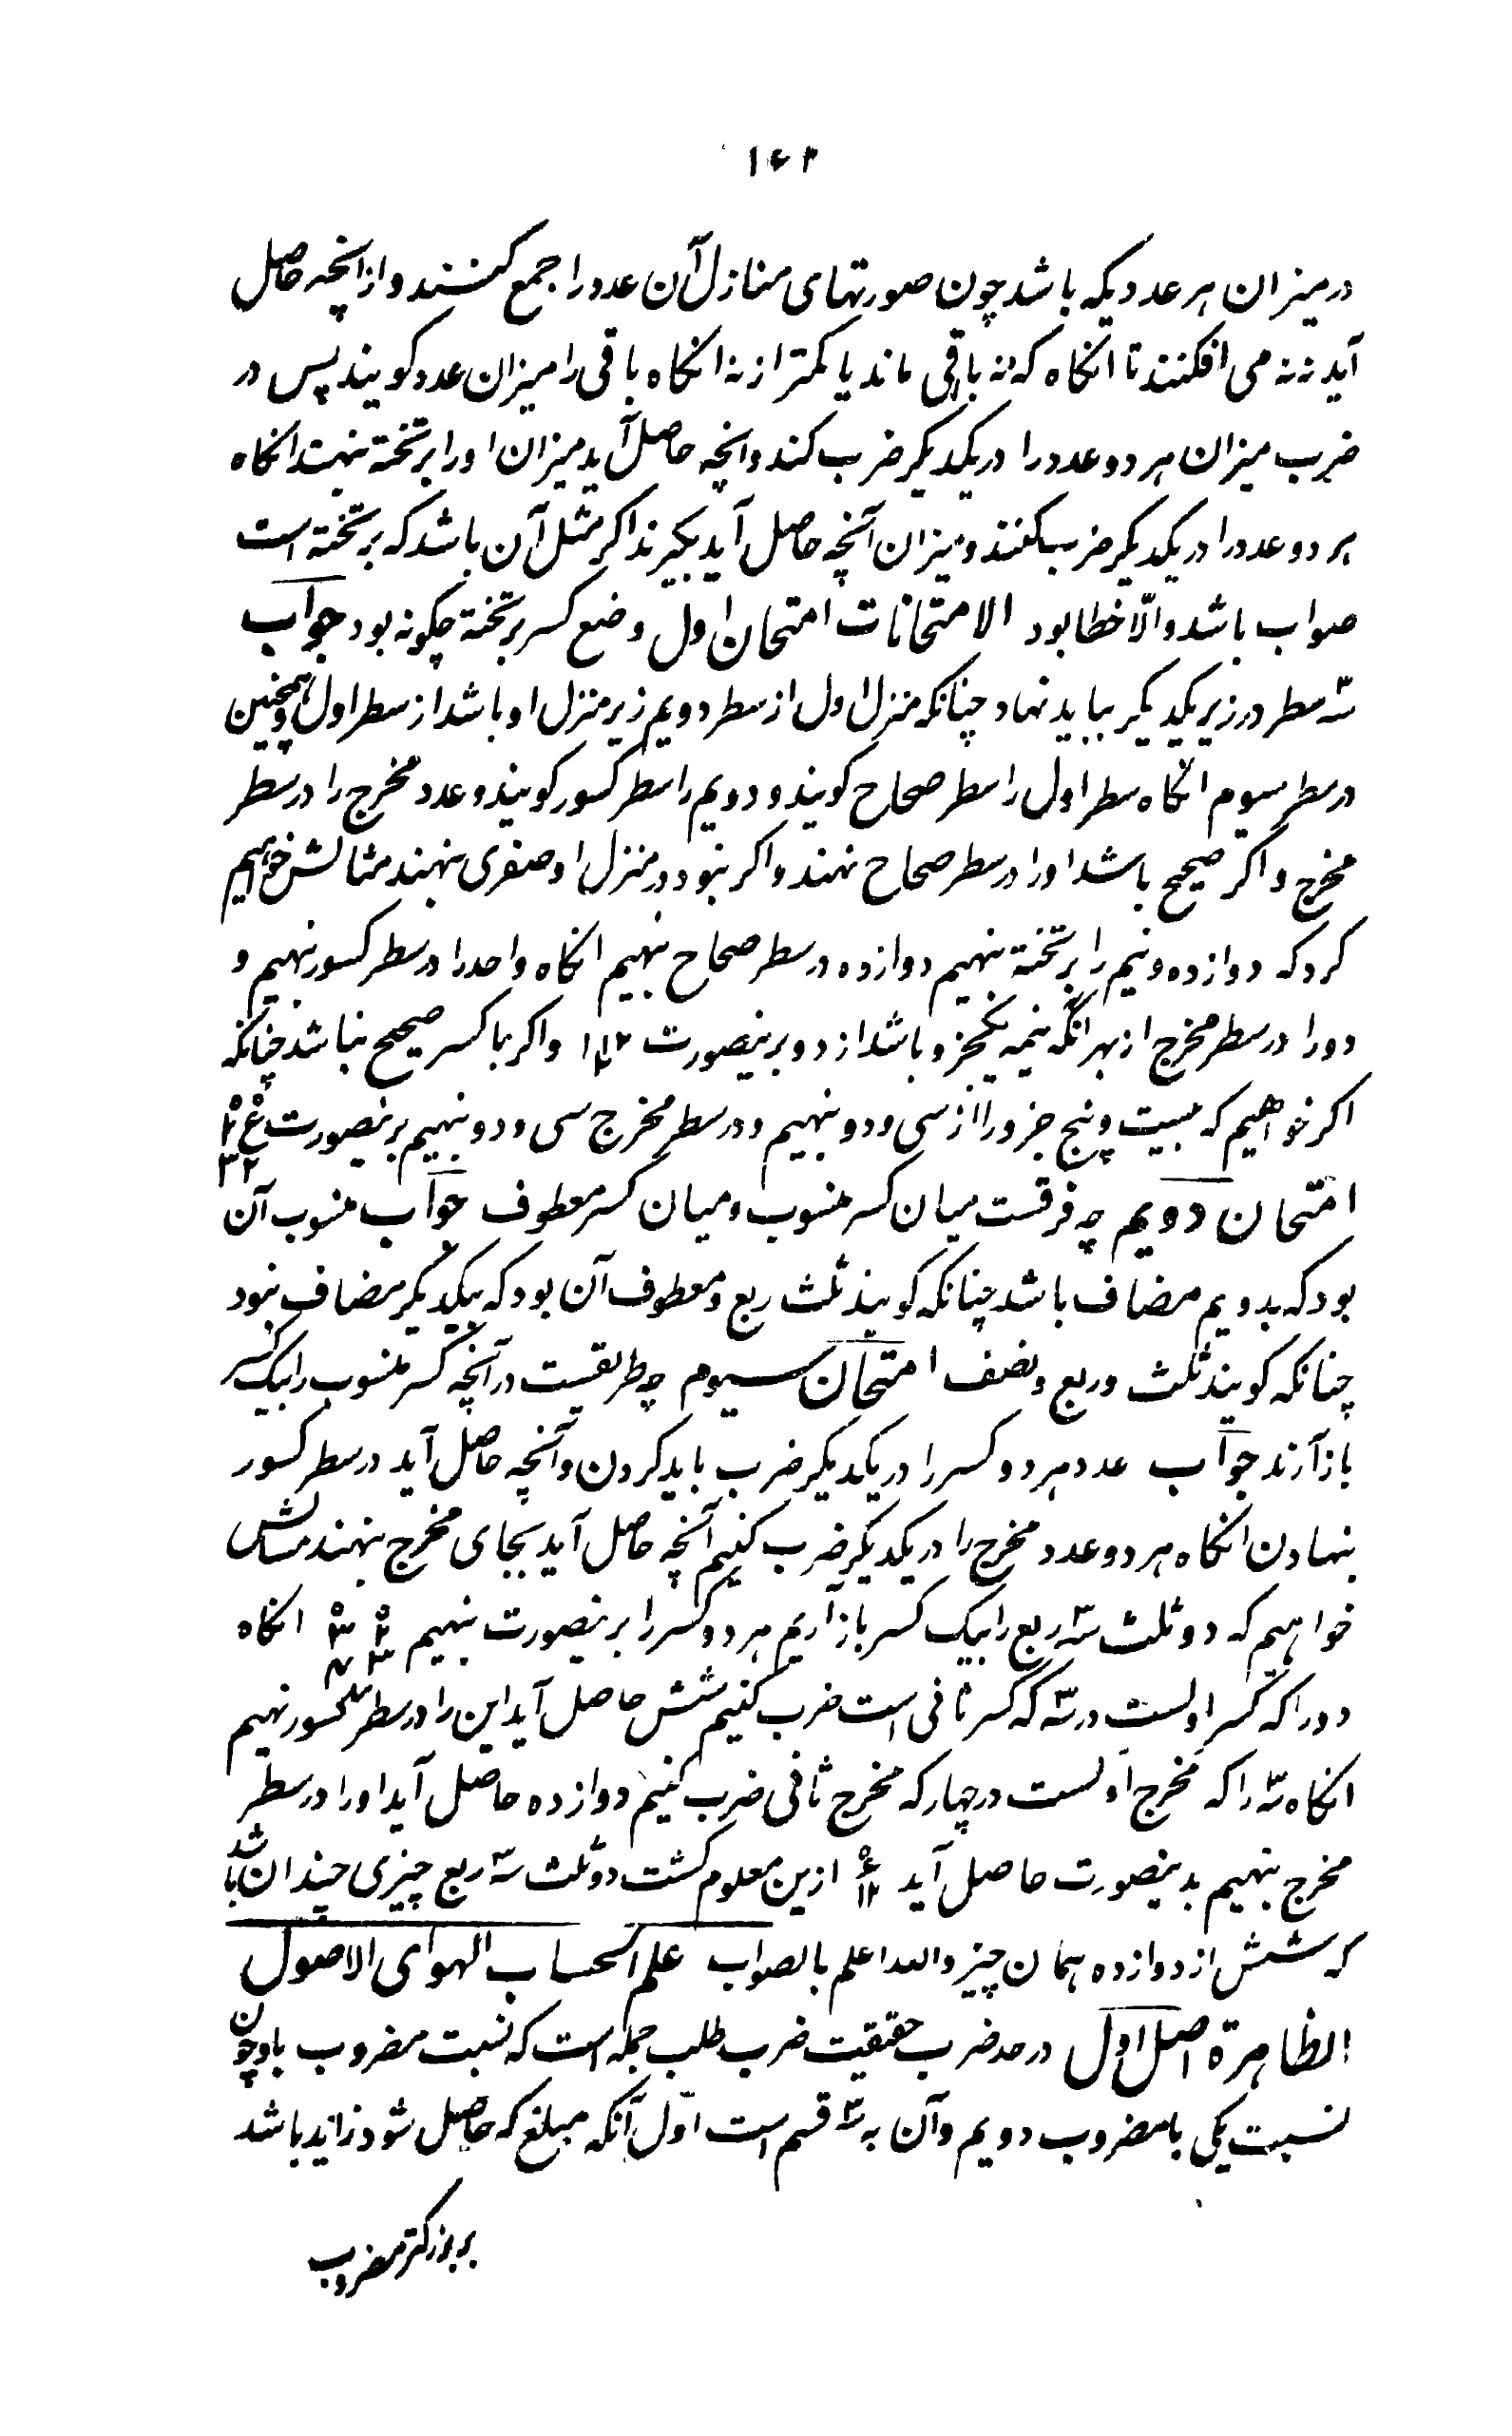 ۱۶۲
در میزان هر عدد یکه باشد چون صورتهای منازل آن عدد را جمع کنند و از انچه حاصل
آید نه نه می افکنند تا انکاه که نه باقی ماند یا کمتر از نه انکاه باقی را میزان عدد کویند پس در
ضرب میزان هر دو عدد را در یکدیکر ضرب کند و انچه حاصل آید میزان او را بر تخته نهند انکاه
هر دو عدد را در یکدیکر ضرب کنند و میزان آنچه حاصل آید بکیرند اکر مثل آن باشد که بر تخته است
صواب باشد و الّا خطا بود الامتحانات امتحان اول وضع کسر بر تخته چکونه بود جواب
سه سطر در زیر یکدیکر بباید نهاد چنانکه منزل اول از سطر دویم زیر منزل او باشد از سطر اول و همچنین
در سطر سیوم انکاه سطر اول را سطر صحاح کویند و دویم را سطر کسور کویند و عدد مخرج را در سطر
مخرج و اکر صحیح باشد او را در سطر صحاح نهند و اکر نبود در منزل او صفری نهند مثالش خواهیم
کرد که دوازده و نیم را بر تخته نهیم دوازده در سطر صحاح نهیم انکاه واحد را در سطر کسور نهیم و
دو را در سطر مخرج از بهر انکه نیمه یکجزو باشد از دو برینصورت ۱۲ ۱ ۲ و اکر با کسر صحیح نباشد چنانکه
اکر خواهیم که بیست و پنج جزو را از سی و دو نهیم و در سطر مخرج سی و دو نهیم برینصورت ۳۲
امتحان دویم چه فرقست میان کسر منسوب و میان کسر معطوف جواب منسوب آن
بود که بدویم مضاف باشد چنانکه کویند ثلث ربع و معطوف آن بود که بیکدیکر مضاف نبود
چنانکه کویند ثلث و ربع و نصف امتحان سیوم چه طریقست در آنچه کسر منسوب را بیک کسر
باز آرند جواب عدد هر دو کسر را در یکدیکر ضرب باید کردن و آنچه حاصل آید در سطر کسور
بنهادن انکاه هر دو عدد مخرج را در یکدیکر ضرب کنیم آنچه حاصل آید بجای مخرج بنهند مثالش
خواهیم که دو ثلث سه ربع را بیک کسر باز آریم هر دو کسر را برینصورت بنهیم ۰ ۲ ۳ ۰ ۳ ۴ انکاه
دو را که کسر اولست در سه که کسر ثانی است ضرب کنیم شش حاصل آید این را در سطر کسور نهیم
انکاه سه را که مخرج اولست در چهار که مخرج ثانی ضرب کنیم دوازده حاصل آید او را در سطر
مخرج بنهیم بدینصورت حاصل آید ۰ ۶ ۱۲ ازین معلوم کشت دو ثلث سه ربع چیزی چندان باشد
که شش از دوازده همان چیز والله اعلم بالصواب علم الحساب الهوای الاصول
الظاهرة اصل اول در حد ضرب حقیقیت ضرب طلب جمله است که نسبت مضروب باو چون
نسبت یکی با مضروب دویم و آن به سه قسم است اوّل آنکه مبلغ که حاصل شود زاید باشد
بر بزرکتر مضروب